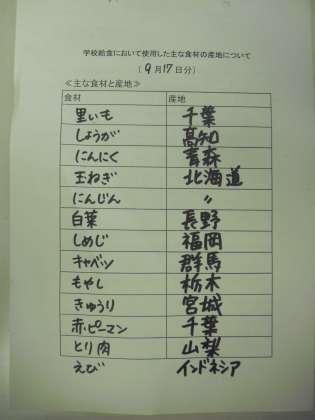 学校給食において使用した主な食材の産地について
(9月17日分)
≪主な食材と産地≫
食材 産地
里いも 千葉
しょうが 高知
にんにく 青森
玉ねぎ 北海道
にんじん 〃
白菜 長野
しめじ 福岡
キャベツ 群馬
もやし 栃木
きゅうり 宮城
赤ピーマン 千葉
とり肉 山梨
えび インドネシア